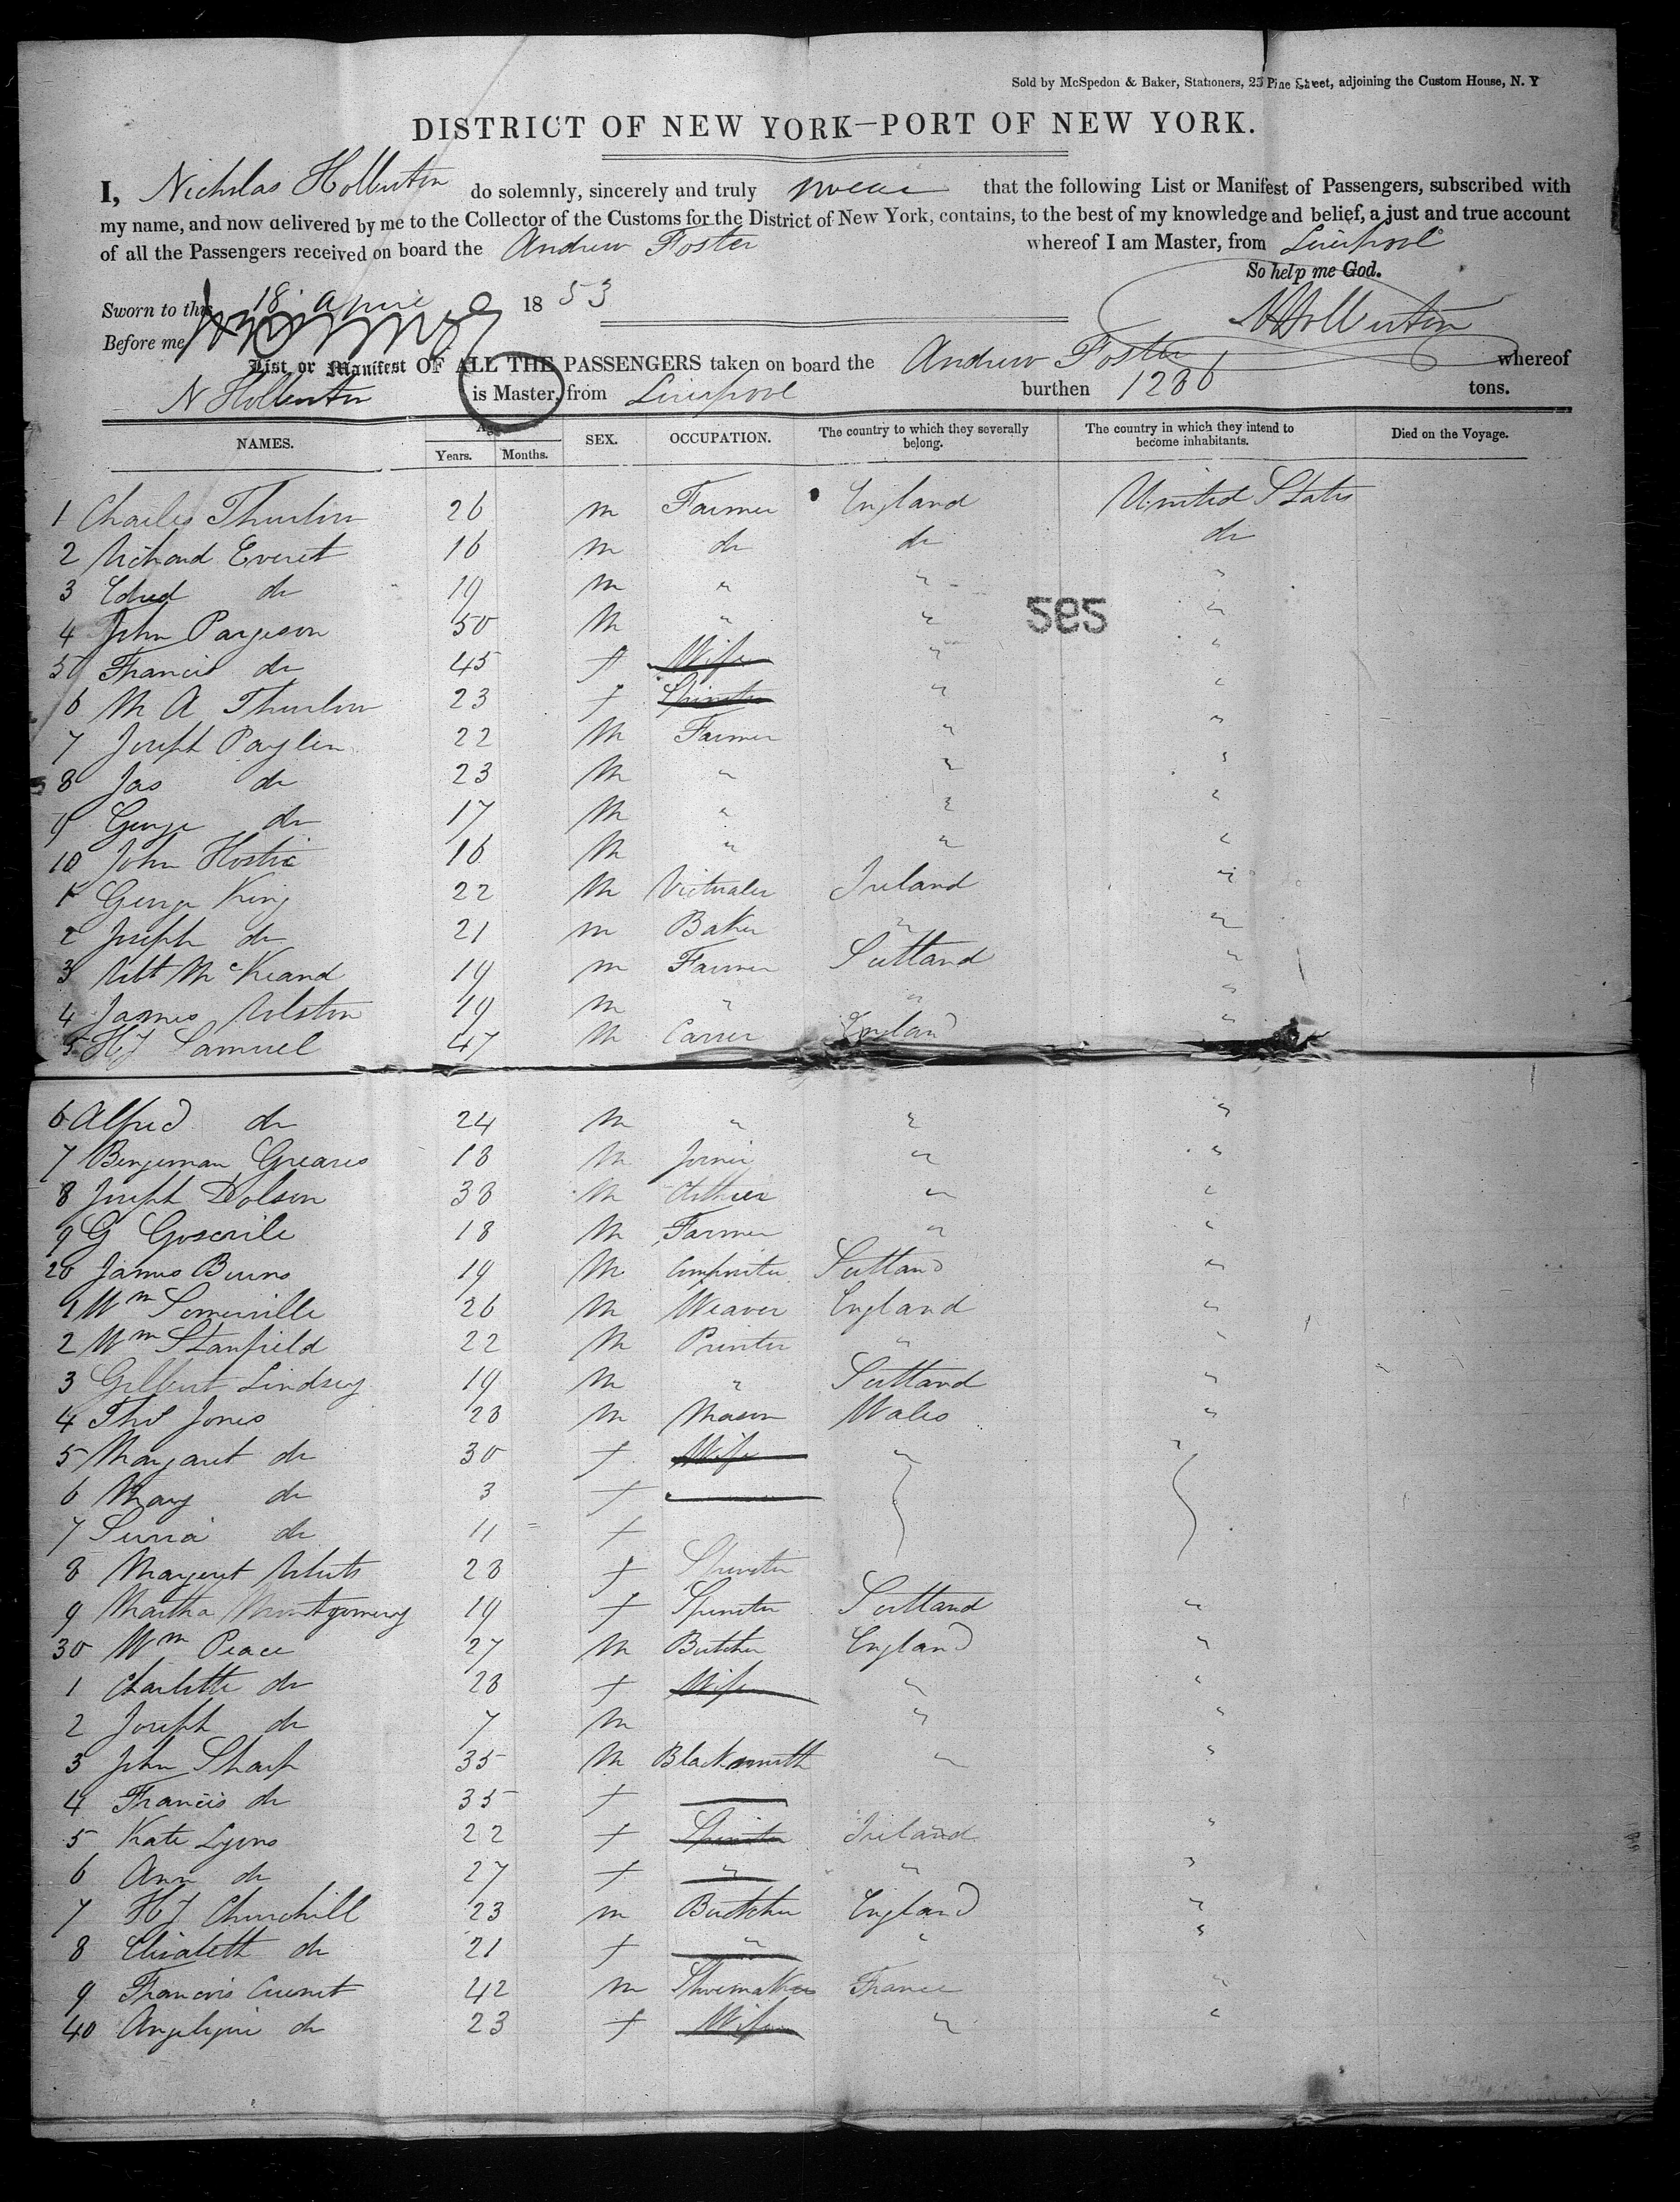 Sold by McSpedon & Baker, Stationers, 25 Pine Street, adjoining the Custom House, N. Y
DISTRICT OF NEW YORK—PORT OF NEW YORK.
I, Nicholas Holberton do solemnly, sincerely and truly swear that the following List or Manifest of Passengers, subscribed with
my name, and now delivered by me to the Collector of the Customs for the District of New York, contains, to the best of my knowledge and belief, a just and true account
of all the Passengers received on board the Andrew Foster whereof I am Master, from Liverpool
So help me God.
Sworn to this 18 April 1853
N Holberton
Before me
List or Manifest OF ALL THE PASSENGERS taken on board the Andrew Foster whereof
N Holberton is Master, from Liverpool burthen 1286 tons.
NAMES. Age Years. Months. SEX. OCCUPATION. The country to which they severally belong. The country in which they intend to become inhabitants. Died on the Voyage.
1 Charles Thurlow 26 m Farmer England United States
2 Richard Everet 16 m do do do
3 Edwd do 19 m " " "
595
4 John Pargeson 50 M " " "
5 Francis do 45 f Wife " "
6 M A Thurlow 23 f Spinster " "
7 Joseph Paylin 22 M Farmer " "
8 Jas do 23 M " " "
9 George do 17 M " " "
10 John 16 M " " "
1 George King 22 M Victualer Ireland "
2 Joseph do 21 m Baker " "
3 Robt McKeand 19 m Farmer Scotland "
4 James Rolston 19 m " " "
5 HJ Samuel 47 M Carver England "
6 Alfred do 24 M " " "
7 Benjeman Greaves 18 M Joiner " "
8 Joseph Dolson 38 M Clothier " "
9 G 18 M Farmer " "
20 James Burns 19 M Compositer Scotland "
1 Wm Somerville 26 M Weaver England "
2 Wm Stanfield 22 M Printer " "
3 Gilbert Lindsey 19 M " Scotland "
4 Thos Jones 28 M Mason Wales "
5 Margaret do 30 f Wife " "
6 Mary do 3 f
7 do 11 f
8 Margeret 28 f Spinster
9 Martha Montgomery 19 f Spinster Scotland "
30 Wm Peace 27 M Butcher England "
1 Charlotte do 28 f Wife " "
2 Joseph do 7 M " "
3 John Sharp 35 M Blacksmith " "
4 Francis do 35 f
5 Kate Lyons 22 f Spinster Ireland "
6 Ann do 27 f " " "
7 HJ Churchill 23 m Butcher England "
8 Elizabeth do 21 f " " "
9 Francois 42 m Shoemaker France "
40 Angelique do 23 f Wife " "